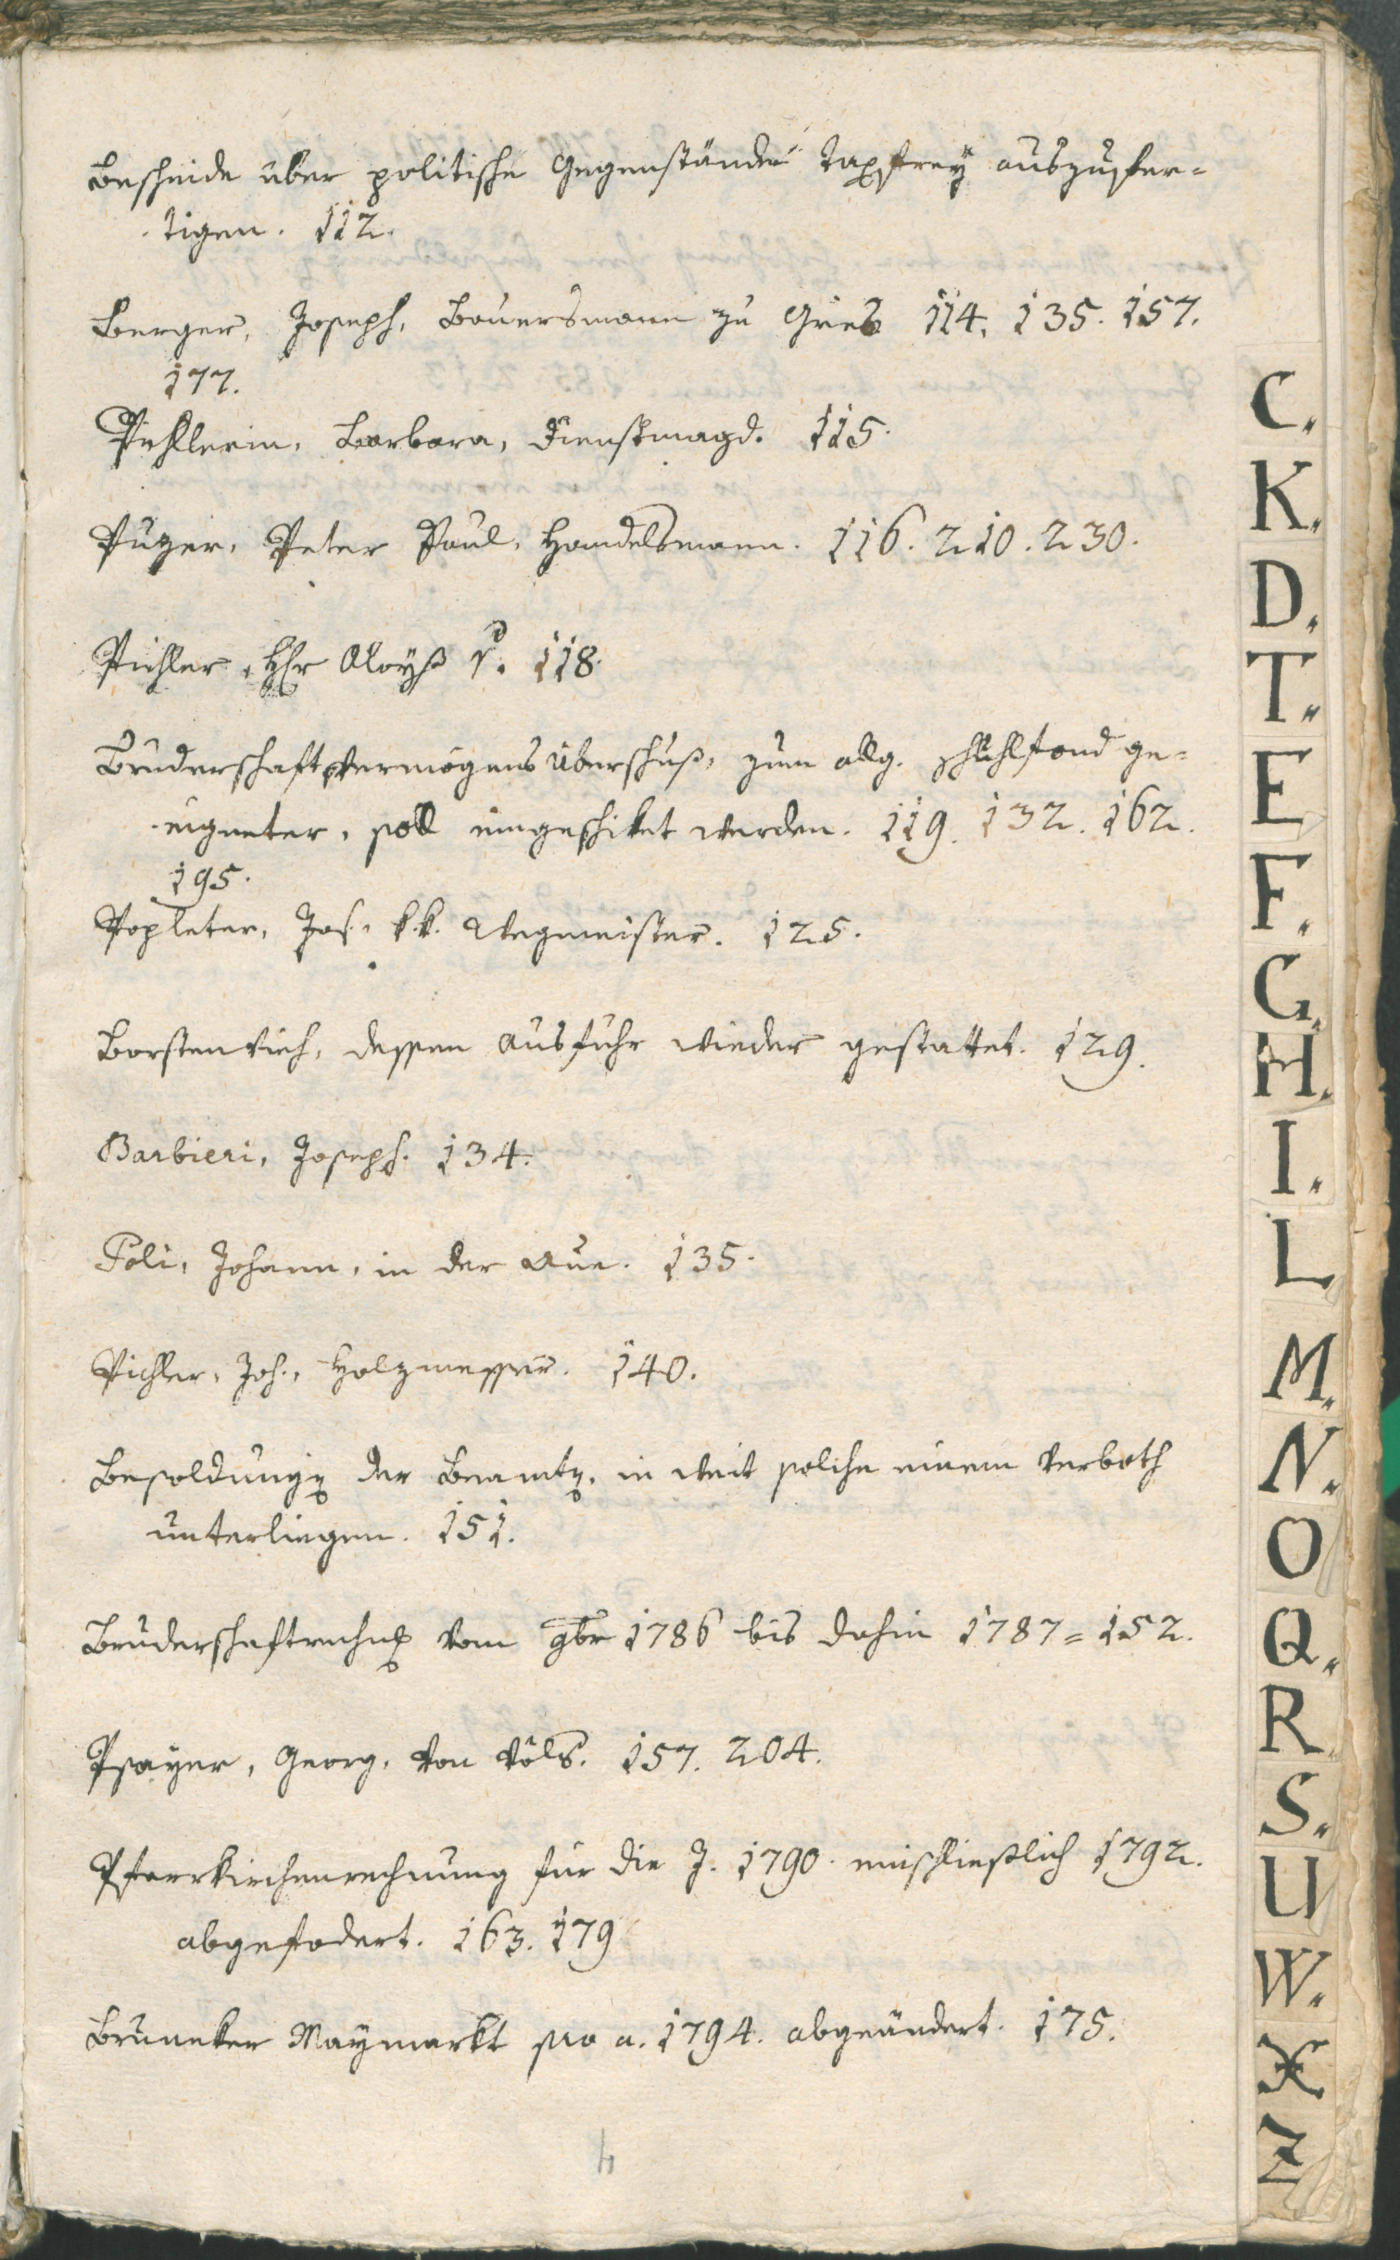 Bescheide über politische Gegenstände taxfrey auszufer=
tigen. 112.
Berger, Joseph, Bauersmann zu Gries 114. 135. 157.
177.
Pichlerin, Barbara, Dienstmagd. 115.
Puzer, Peter Paul, Handelsmann. 116. 210. 230.
Pichler, Hr Aloyß 118.
Bruderschaftsvermögens Überschuß, zum allg. Schuhlfond ge=
eigneter, soll eingeschiket werden. 119. 132. 162.
195.
Popleter, Jos., k.k. Wegmeister. 125.
Borstenvieh, dessen Ausfuhr wieder gestattet. 129.
Barbieri, Joseph. 134.
Poli, Johann, in der Aue. 135.
Pichler, Joh., Holzmesser. 140.
Besoldungen der Beamten, in weit solche einem Verboth
unterliegen. 151.
Bruderschaftrechnung vom 9br 1786 bis dahin 1787 = 152.
Psayer, Georg, von Völs. 157. 204.
Pfarrkirchenrechnung für die J. 1790. einschließlich 1792.
abgefodert. 163. 179
Bruneker Maymarkt pro a. 1794. abgeändert. 175.
4
C.
K.
D.
T.
E
F.
G.
H.
I.
L
M.
N.
O
Q.
R.
S.
U
W.
X
Z